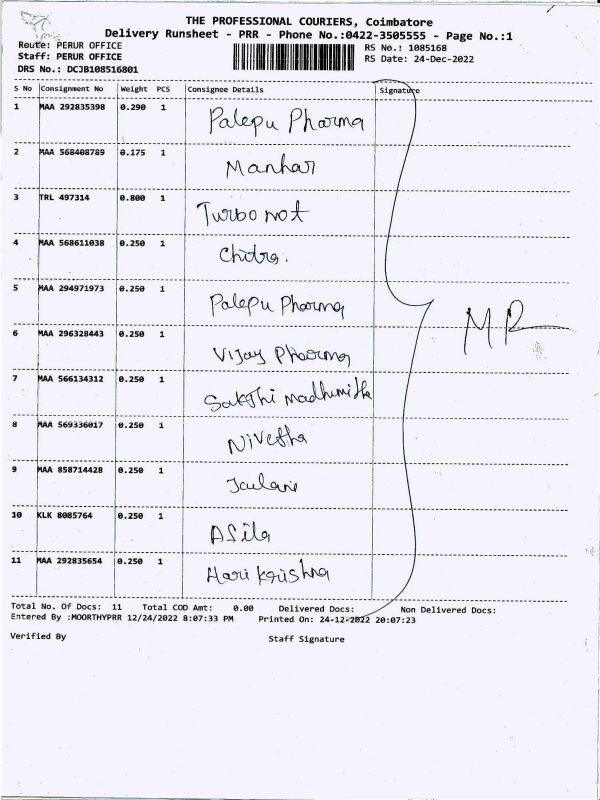 THE PROFESSIONAL COURIERS, Coimbatore
Delivery Runsheet - PRR - Phone No.:0422-3505555 - Page No.:1
Route: PERUR OFFICE RS No.: 1085168
Staff: PERUR OFFICE RS Date: 24-Dec-2022
DRS No.: DCJB108516801
S No Consignment No Weight PCS Consignee Details Signature
1 MAA 292835398 0.290 1 Palepu Pharma
2 MAA 568408789 0.175 1 Manhar
3 TRL 497314 0.800 1 Turbo not
4 MAA 568611038 0.250 1 Chitra.
5 MAA 294971973 0.250 1 Palepu Pharma
6 MAA 296328443 0.250 1 Vijay Pharma
MR
7 MAA 566134312 0.250 1 Sakthi madhumitha
8 MAA 569336017 0.250 1 Nivetha
9 MAA 858714428 0.250 1
10 KLK 8085764 0.250 1 Asila
11 MAA 292835654 0.250 1 Hari Krishna
Total No. Of Docs: 11 Total COD Amt: 0.00 Delivered Docs: Non Delivered Docs:
Entered By :MOORTHYPRR 12/24/2022 8:07:33 PM Printed On: 24-12-2022 20:07:23
Verified By Staff Signature